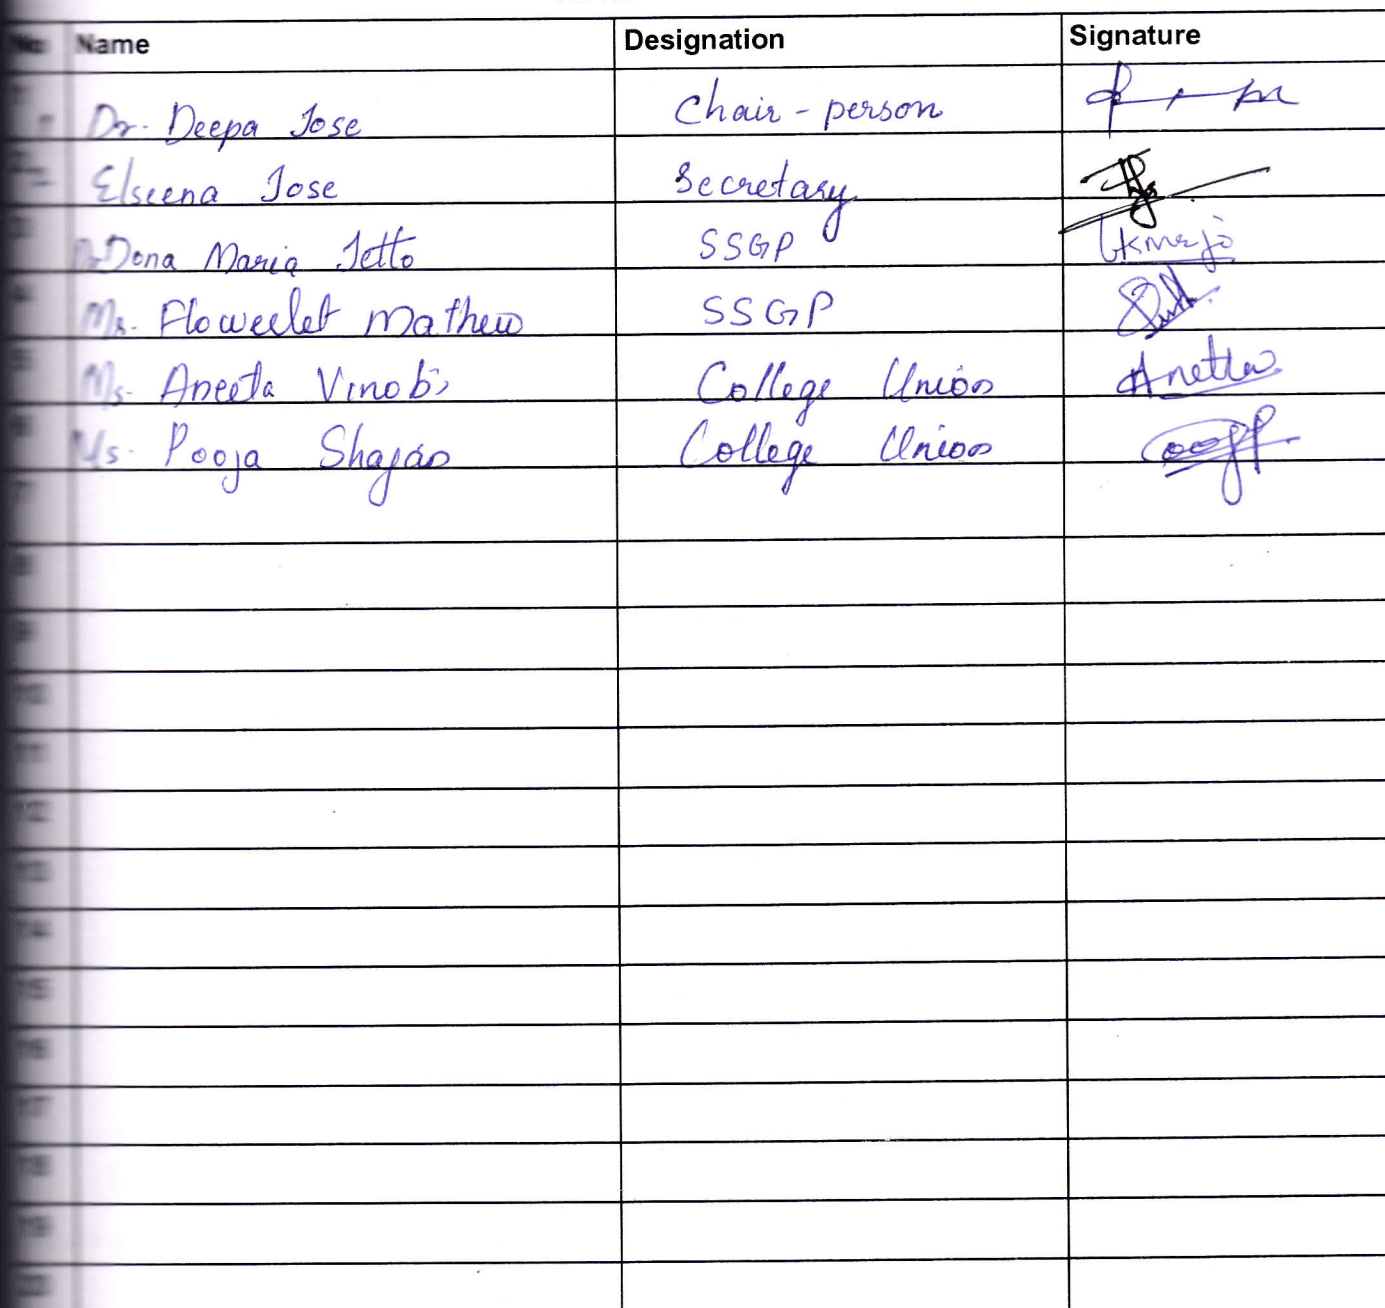 No. Name Designation Signature
1 Dr. Deepa Jose Chair-person
2 Elseena Jose Secretary
3 Dr Dona Maria Jetto SSGP
4 Ms. Floweelet Mathew SSGP
5 Ms. Aneeta Vinobi College Union Anetta
6 Ms. Pooja Shajan College Union
7
8
9
10
11
12
13
14
15
16
17
18
19
20